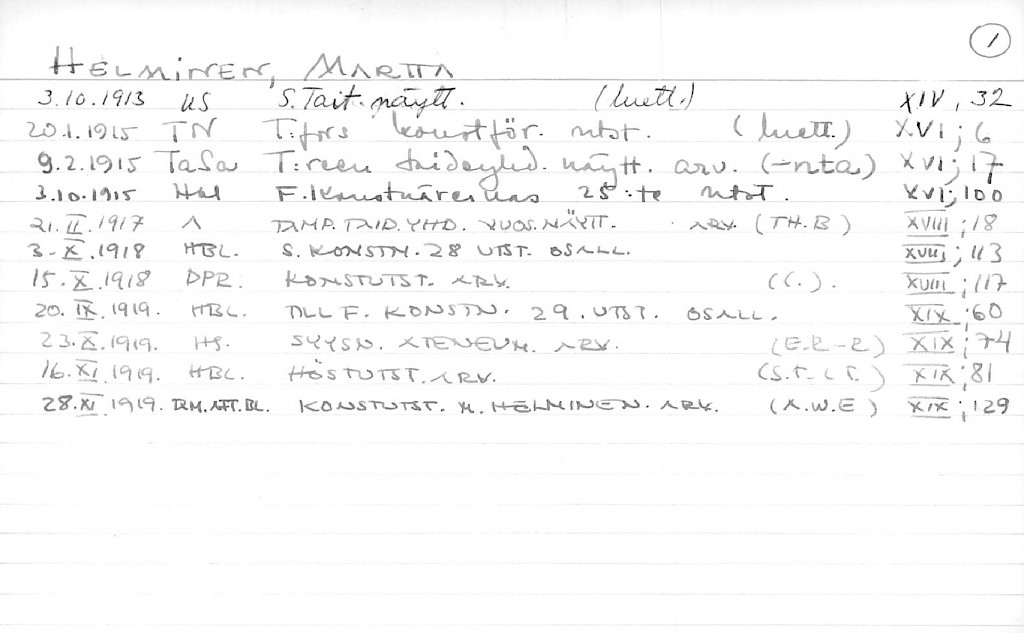 1
HELMINEN, MARTTA
3.10.1913 US S. Tait. näytt. (luett.) XIV, 32
20.1.1915 TN T:fors konstför. utst. (luett.) XVI; 6
9.2.1915 TaSa T:reen taideyhd. näytt. arv. (-nta) XVI; 17
3.10.1915 Hbl F. Konstnärernas 25:te utst. XVI; 100
21.II.1917 A TAMP. TAID. YHD. VUOS. NÄYTT. ARV. (TH.B) XVIII; 18
3.X.1918 HBL. S. KONSTN. 28 UTST. OSALL. XVIII; 113
15.X.1918 DPR. KONSTUTST. ARV. (C.). XVIII; 117
20.IX.1919. HBL. TILL F. KONSTN. 29. UTST. OSALL. XIX; 60
23.X.1919. HS. SYYSN. ATENEUM. ARV. (E.R-R) XIX; 74
16.XI.1919. HBL. HÖSTUTST. ARV. (S.T-LT.) XIX; 81
28.XI.1919. TRM.AFT.BL. KONSTUTST. M. HELMINEN. ARV. (A.W.E) XIX; 129